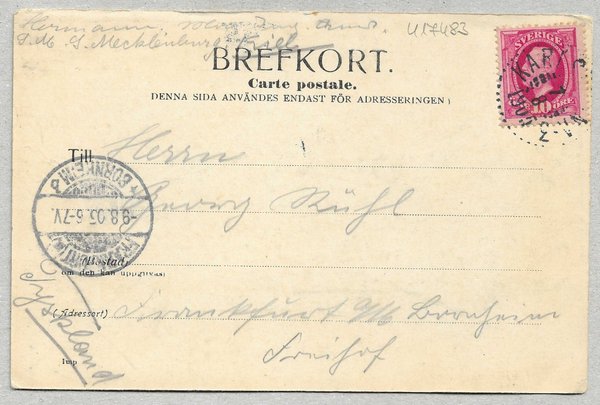 Hermann
S. M. S. Mecklenburg Kiel
417483
BREFKORT.
Carte postale.
DENNA SIDA ANVÄNDES ENDAST FÖR ADRESSERINGEN)
SVERIGE
10 ÖRE
Till Herrn
Georg Rühl
BORNHEIM
-9.8.05.6-7V.
(Bostad
om den kan uppgifvas)
Tyskland
(Adressort) Frankfurt a/M Bornheim
Freihof
Imp